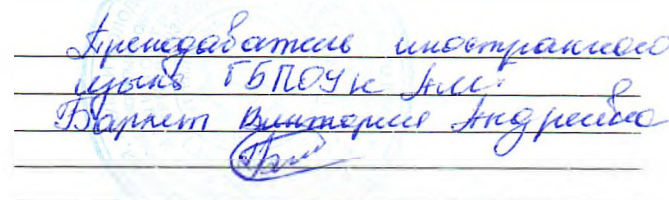 Преподаватель иностранного
языка ГБПОУ
Виктория Андреевна